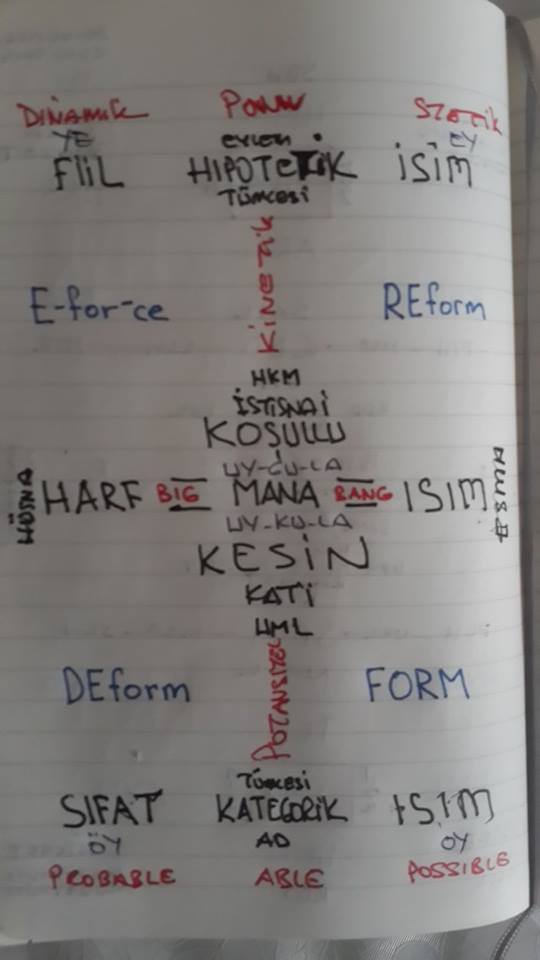 DİNAMİK POWW STETİK
YE EYLEM EY
FİİL HİPOTETİK İSİM
TÜMCESİ
KİNETİK
E-for-ce REform
HKM
İSTİSNAİ
KOŞULLU
UY-GU-LA
HÜSNA HARF BIG MANA BANG ISIM ESMA
UY-KU-LA
KESİN
KATİ
LML
POTANSİYEL
DEform FORM
TÜMCESİ
SIFAT KATEGORİK İSİM
ÖY AD OY
PROBABLE ABLE POSSIBLE